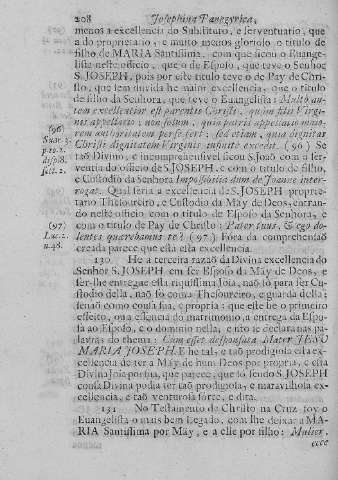 208 Josephina Panegyrica,
menos a excellencia do Substituto, e serventuario, que
a do proprietario, e muito menos glorioso o titulo de
filho de MARIA Santissima, com que ficou o Euange-
lista neste officio, que o de Esposo, que teve o Senhor
S. JOSEPH, pois por este titulo teve o de Pay de Chri-
sto, que tem duvida he maior excellencia, que o titulo
de filho da Senhora, que teve o Euangelista: Multò au-
tem excellentior est parentis Christi, quàm filii Virgi-
nis appellatio: non solum, quia patris appellatio maio-
rem authoritatem perse fert: sed etiam, quia dignitas
Christi dignitatem Virginis infinitè excedit. (96) Se
taõ Divino, e incomprehensivel ficou S. Joaõ com a ser-
ventia do officio de S. JOSEPH, e com o titulo de filho,
e Custodio da Senhora: Impossibiles dum de Joanne inter-
rogas. Qual seria a excellencia de S. JOSEPH proprie-
tario Thesoureiro, e Custodio da Mãy de Deos, entran-
do neste officio com o titulo de Esposo da Senhora, e
com o titulo de Pay de Christo: Pater tuus, & ego do-
lentes quærebamus te? (97) Fóra da comprehensaõ
creada parece que està esta excellencia.
(96)
Suar. 3.
p. to. 2.
disp. 8.
sect. 2.
(97)
Luc. 2.
n. 48.
130 He a terceira razaõ da Divina excellencia do
Senhor S. JOSEPH em ser Esposo da Mãy de Deos, e
ser-lhe entregue esta riquissima Joia, naõ só para ser Cu-
stodio della, naõ só como a Thesoureiro, e guarda della;
senaõ como cousa sua, e propria: que este he o primeiro
effeito, ou a essencia do matrimonio, a entrega da Espo-
sa ao Esposo, e o dominio nella, e isto se declara nas pa-
lavras do thema: Cum esset desponsata Mater JESU
MARIA JOSEPH. E he tal, e taõ prodigiosa esta ex-
cellencia de ter a Mãy de hum Deos por propria, e esta
Divina Joia por sua, que parece, que só sendo S. JOSEPH
cousa Divina podia ter taõ prodigiosa, e maravilhosa ex-
cellencia, e taõ venturosa sorte, e dita.
131 No Testamento de Christo na Cruz foy o
Euangelista o mais bem Legado, com lhe deixar a MA-
RIA Santissima por Mãy, e a elle por filho: Mulier,
ecce